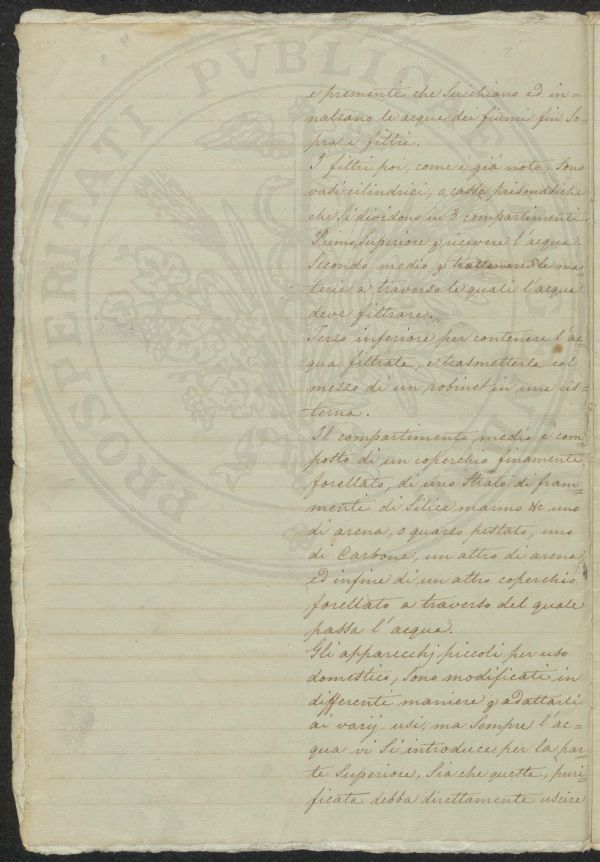 e prementi che Succhiano ed in=
nalzano le acque dei fiumi fin So=
pra i filtri.
I filtri poi, come è già noto, Sono
vasi cilindrici, o casse prismatiche
che Si dividono in 3 compartimenti.
Primo, Superiore p ricevere l'acqua.
Secondo, medio p trattenere le ma=
terie a traverso le quali l'acqua
deve filtrare.
Terzo inferiore per contenere l'ac=
qua filtrata, e trasmetterla col
mezzo di un robinet in una cis=
terna.
Il compartimento medio è com=
posto di un coperchio finamente
forellato, di uno Strato di fram=
menti di Silice marmo &c uno
di arena, o quarzo pestato, uno
di Carbone, un altro di arena,
ed infine di un altro coperchio
forellato a traverso del quale
passa l'acqua.
Gli apparecchj piccoli per uso
domestico, Sono modificati in
differenti maniere p adattarli
ai varij usi, ma Sempre l'ac=
qua vi Si introduce per la par=
te Superiore, Sia che questa, puri=
ficata debba direttamente uscire
PROSPERITATI PVBLICAE